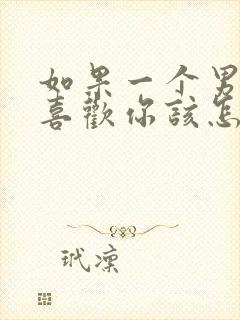 如果一个男
喜歡你該怎
玳凜